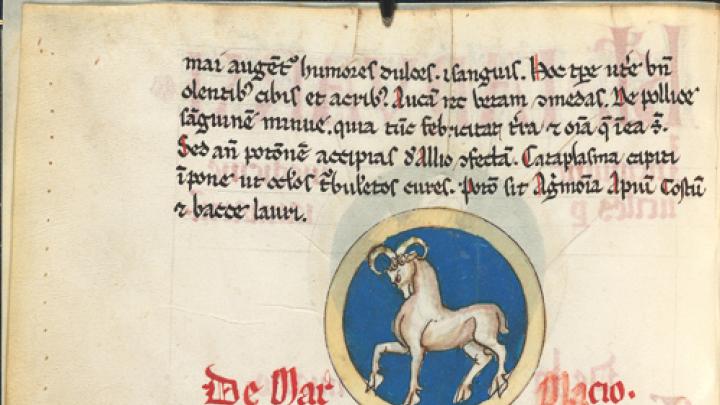 mai augēt᷒ humores dulces. ⁊ sanguis. Hoc tp̄e ut'e bn̄
olentib᷒ cibis et acrib᷒. Aucā nec betam ꝯmedas. De pollice
sāguinē minue. quia tūc febricitat t̄ra ⁊ oīa q̄ ī ea s̄.
Sed an̄ potōnē accipias d' Allio ꝯfectā. Cataplasma capiti
īpone ut oc̄los t'buletos cures. Poto sit Ag̃moīa Apiū Costū
⁊ bacce lauri.
De Mar Macio.